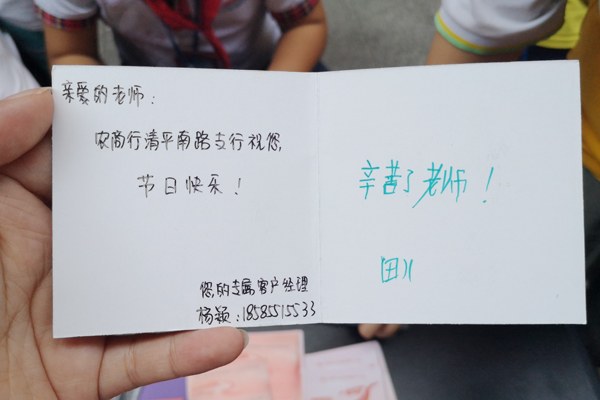 亲爱的老师：
农商行清平南路支行祝您
节日快乐！
您的专属客户经理
杨颖：18585515533
辛苦了老师！